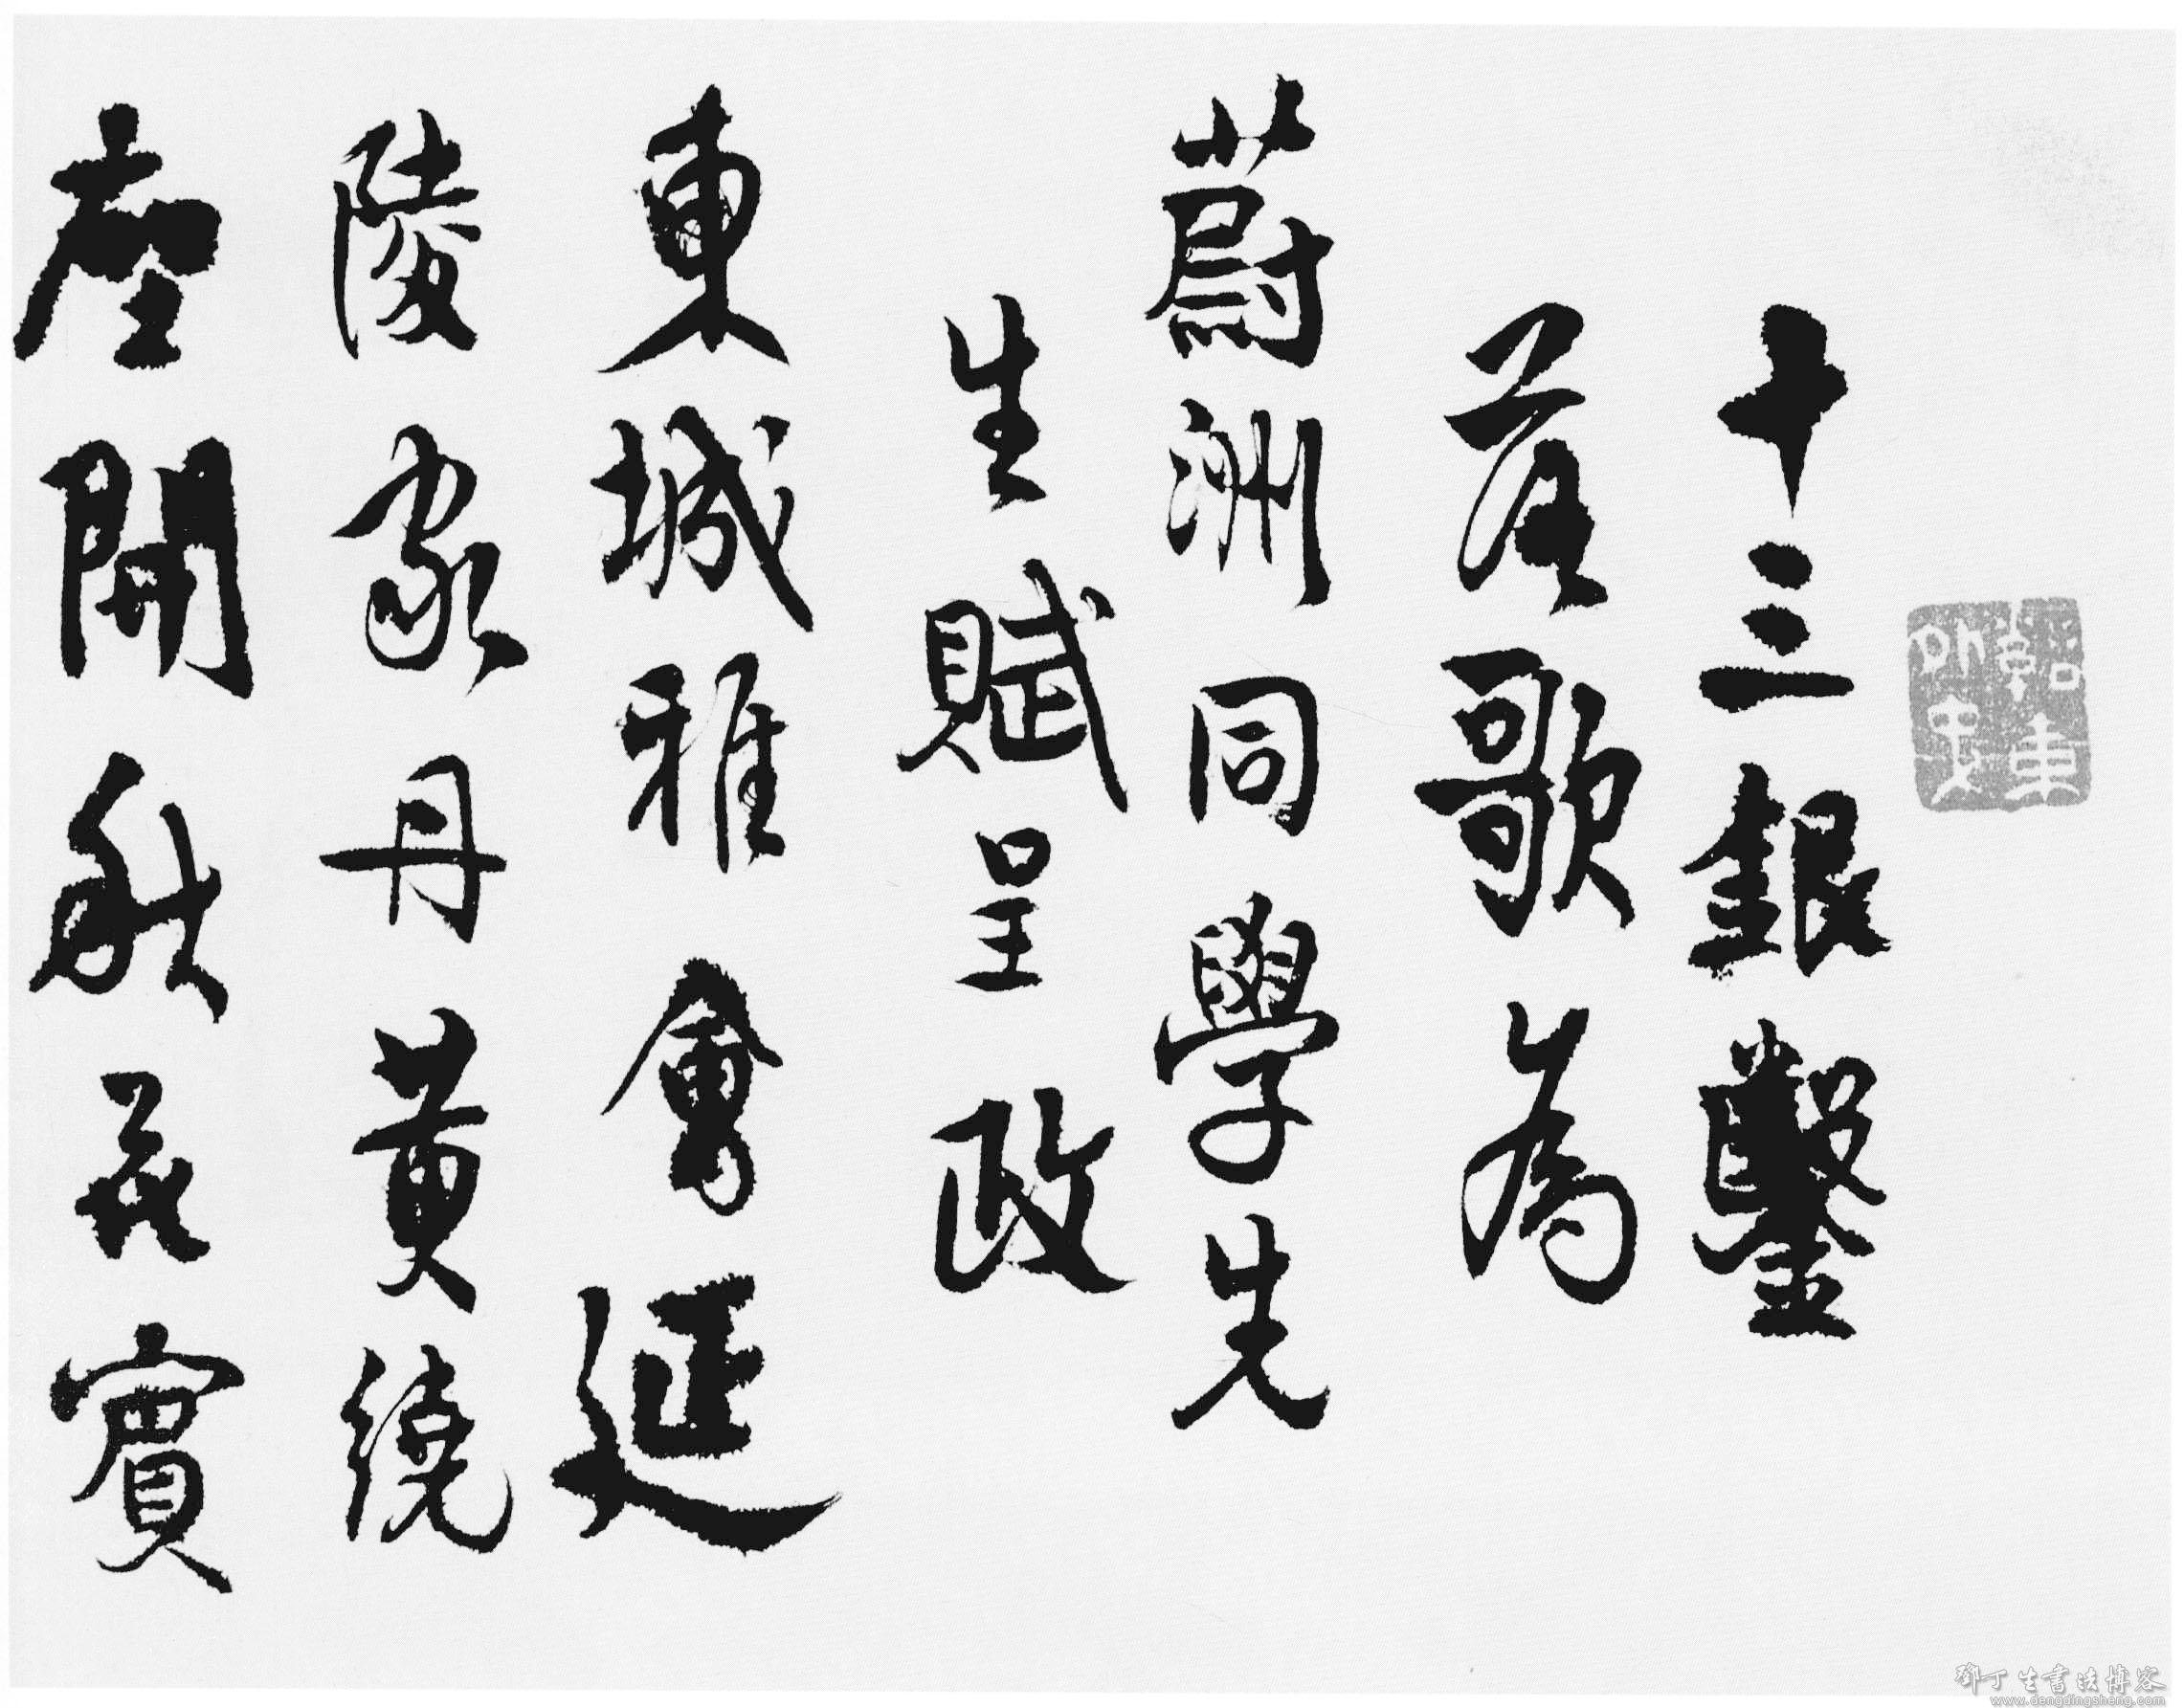 十三銀鑿
落歌為
蔚洲同學先
生賦呈政
東城雅會延
陵家丹黃繞
座開秋花賓
鄧丁生書法博客
www.dengdingsheng.com